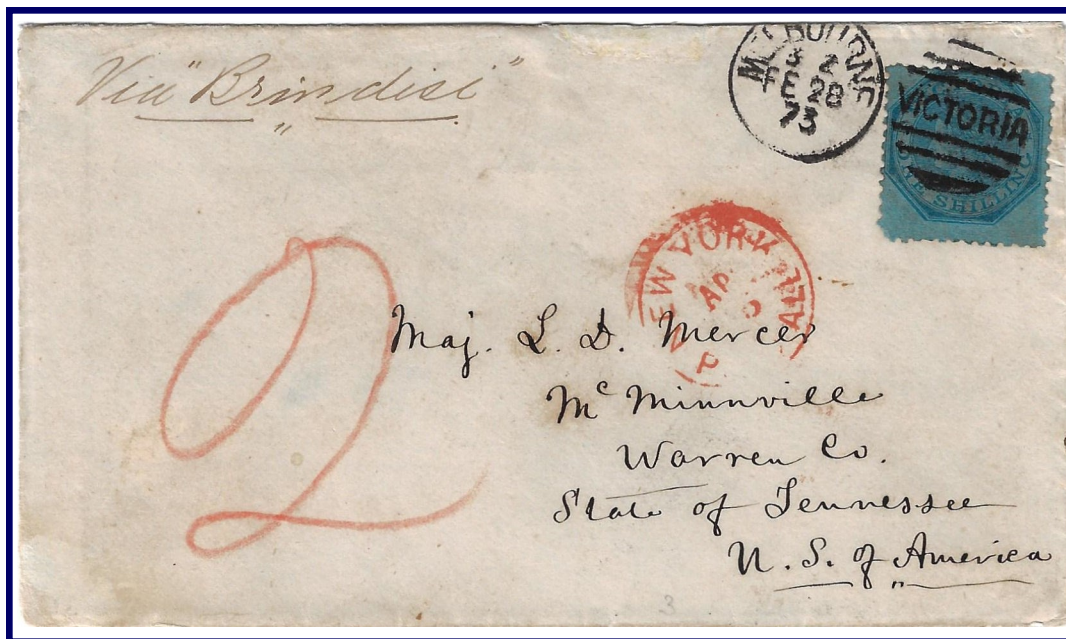 Via "Brindisi"
MELBOURNE
3 Z
FE 28
73
VICTORIA
ONE SHILLING
NEW YORK
AP
P ALL
2
Maj. L. D. Mercer
Mc Minnville
Warren Co.
State of Tennessee
U. S. of America
3